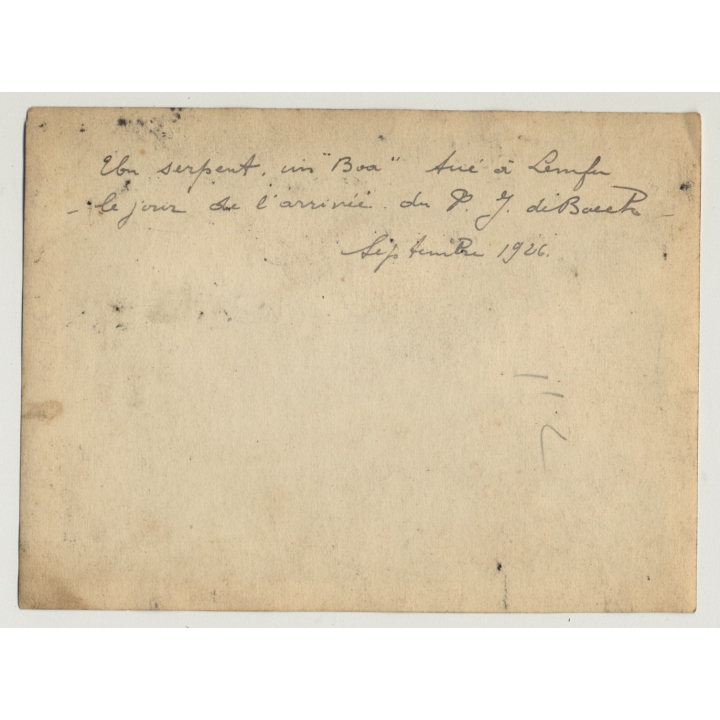 Un serpent, un "Boa" tué à Lemfu
- le jour de l'arrivée du P. J. de Baeck -
Septembre 1926.